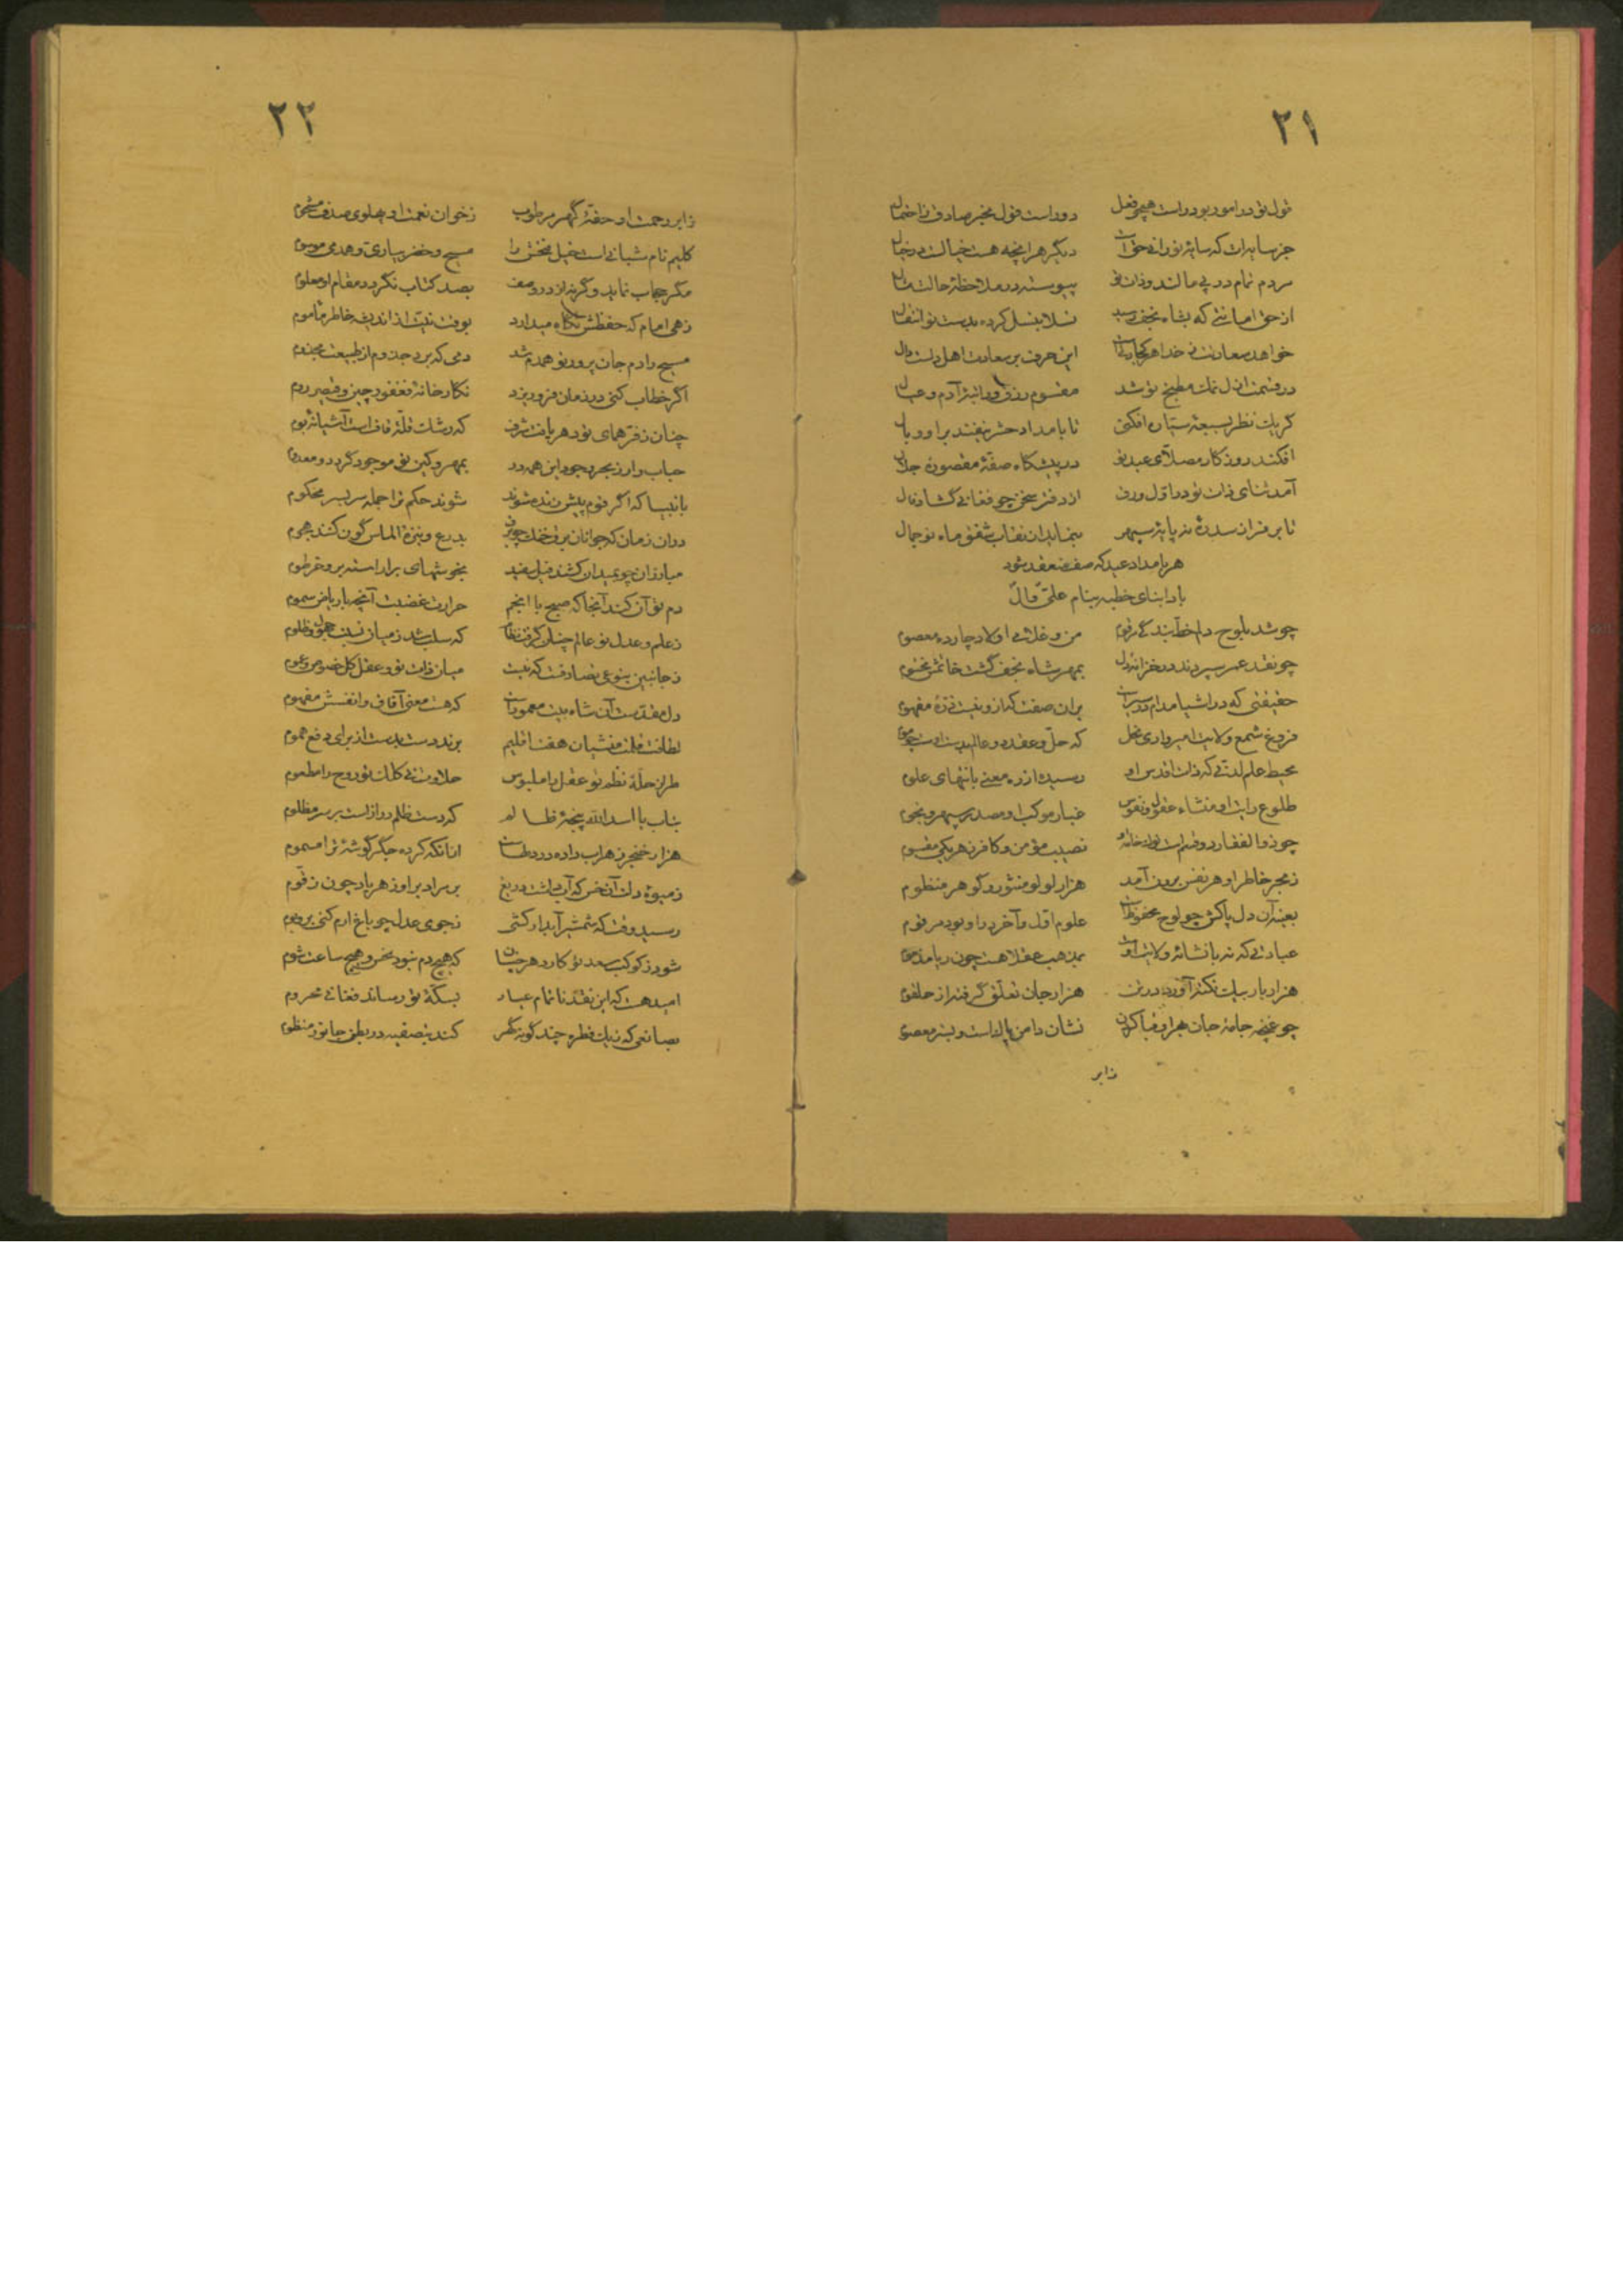 ۲۱
قول تو در امور بود راست همچو فعل دور است قول مخبر صادق ز احتمال
جز سایه‌ات که سایهٔ نور اله حق است دیگر هر آنچه هست خیالست در خیال
مردم تمام در پی مالند و ذات تو پیوسته در ملاحظهٔ حالت مآل
از حق امانتی که بشاه نجف رسید نسلا بنسل کرده بدست تو انتقال
خواهد سعادت ز خدا هر کجا این حرف بر سعادت اهل دلست دال
در قسمت ازل نمک مطبخ تو شد مقسوم رزق و راتبهٔ آدم و عیال
گر یک نظر بسبعهٔ سیاره افکنی تا بامداد حشر نیفتند در وبال
افکند روزگار مصلای عید تو در پیشگاه صفهٔ مقصورهٔ جلال
آمد ثنای ذات تو در اول ورق از دفتر سخن چو فغانی گشاد فال
تا بر فراز سدرهٔ نه پایهٔ سپهر بنماید از نقاب شفق ماه نو جمال
هر بامداد عید که صف صف عقد شود
بادا بنای خطبه بنام علی و آل
چو شد بلوح دلم خط بندگی مرقوم من و غلامی اولاد چارده معصوم
چو نقد عمر سپردند در خزانهٔ دل بمهر شاه نجف گشت خاتمش مختوم
حقیقتی که در اشیا مدام در سیر است بران صفت که ازو نیست ذرهٔ مفهوم
فروغ شمع ولایت امیر وادی نحل که حل و عقد دو عالم بدست اوست
محیط علم لدنی که ذات اقدس او رسیده از ره معنی بانتهای علوم
طلوع رایت او منشاء عقول و نفوس غبار موکب او مصدر سپهر و نجوم
چو ذوالفقار دو قسم است نصیب مؤمن و کافر ز هر یکی مقسوم
ز بحر خاطر او هر نفس برون آمد هزار لولو منثور و گوهر منظوم
بعینه آن دل پاکش چو لوح محفوظ است علوم اول و آخر در او بود مرقوم
عبادتی که نه با نشاهٔ ولایت اوست بمذهب عقلا هست چون ریا مذموم
هزار بار بیک نکته آورد در تن هزار جان تعلق گرفته از حلقوم
چو غنچه جامهٔ جان هر که قبا کردن نشان دامن پاک است و سینهٔ معصوم
ز ابر
۲۲
ز ابر رحمت او حقهٔ گهر مرطوب ز خوان نعمت او پهلوی صدف مشحوم
کلیم نام شبانی است خیل بختش را مسیح و خضر بیاری و همدمی موسوم
مگر حجاب نماید وگرنه از ره وصف بصد کتاب نگردد مقام او معلوم
زهی امام که حفظش نگاه میدارد بوقت نیت از اندیشه خاطر ماموم
مسیح را دم جان پرور تو همدم شد دمی که برد جذام از طبیعت مجذوم
اگر خطاب کنی در زمان فرو ریزد نگارخانهٔ فغفور چین و قیصر روم
چنان ز فر همای تو دهر یافت شرف که رشک قلهٔ قاف است آشیانهٔ بوم
حباب وار ز بحر وجود این همه در بمهر و کین تو موجود گردد و معدوم
بانبیا که اگر قوم پیش بنده شوند شوند حکم ترا جمله سر بسر محکوم
دران زمان که جوانان برق خنجر بدرع و نیزهٔ الماس گون کنند هجوم
مبارزان چو بمیدان کشند فیل سفید بخوشهای برآراسته بر و خرطوم
دم تو آن کند آنجا که صبح با انجم حرارت غضبت آنچه با ریاض سموم
ز علم و عدل تو عالم چنان گرفت نظام که سلب شد ز میان نسبت جهول و ظلوم
ز جانبین بنوعی تصادقست که نیست میان ذات تو و عقل کل خصوص و عموم
دل مقدست آن شاه بیت معمور است که هست معنی آفاق و انفسش مفهوم
لطافت قلمت منشیان هفت اقلیم برند دست بدست از برای دفع هموم
طراز حلهٔ نظم تو عقل را ملبوس حلاوت نی کلک تو روح را مطعوم
بتاب یا اسدالله پنجهٔ ظالم که دست ظلم دراز است بر سر مظلوم
هزار خنجر زهراب داده در دل انانکه کرده جگر گوشهٔ ترا مسموم
ز میوهٔ دلت آن خس که آب داشت دریغ برسر او ز هر باد چون زقوم
رسید وقت که شمشیر آبدار کشی ز جوی عدل چو باغ ارم کنی بر و بوم
شود ز کوکب سعد تو کار دهر چنان که هیچ دم نبود نحس و هیچ ساعت شوم
امید هست که این نقد ناتمام عیار بسکهٔ تو رساند فغانی محروم
بصانعی که ز یک قطره چند گونه گهر کند بتصفیه در بطن منظوم